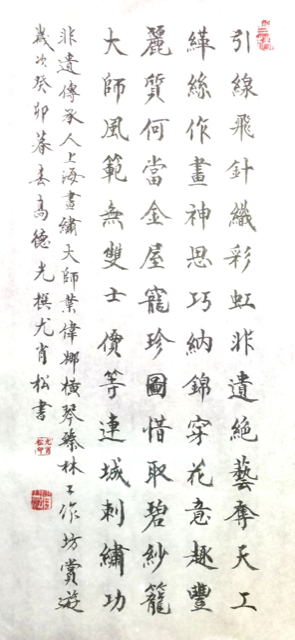 引線飛針織彩虹非遺絶藝奪天工
絳絲作畫神思巧納錦穿花意趣豐
麗質何當金屋寵珍圖惜取碧紗籠
大師風範無雙士價等連城刺繡功
非遺傳承人上海畫繡大師葉偉娜橫琴藝林工作坊賞遊
歲次癸卯暮春高德光撰尤肖松書